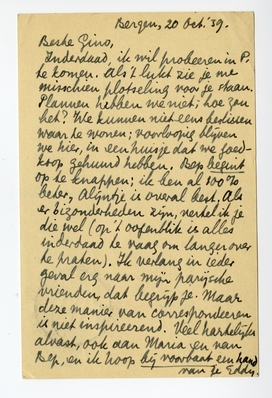 Bergen, 20 Oct. '39.
Beste Gino,
Inderdaad, ik wil probeeren in P.
te komen. Als 't lukt zie je me
misschien plotseling voor je staan.
Plannen hebben we niet; hoe zou
het? We kunnen niet eens beslissen
waar te wonen; voorloopig blijven
we hier, in een huisje dat we goed-
koop gehuurd hebben. Bep begint
op te knappen; ik ben al 100%
beter, Alijntje is overal best. Als
er bizonderheden zijn, vertel ik je
die wel (op 't oogenblik is alles
inderdaad te vaag om langer over
te praten). Ik verlang in ieder
geval erg naar mijn parijsche
vrienden, dat begrijp je. Maar
deze manier van correspondeeren
is niet inspireerend. Veel hartelijks
alvast, ook aan Maria en van
Bep, en ik hoop bij voorbaat een hand
van je Eddy.